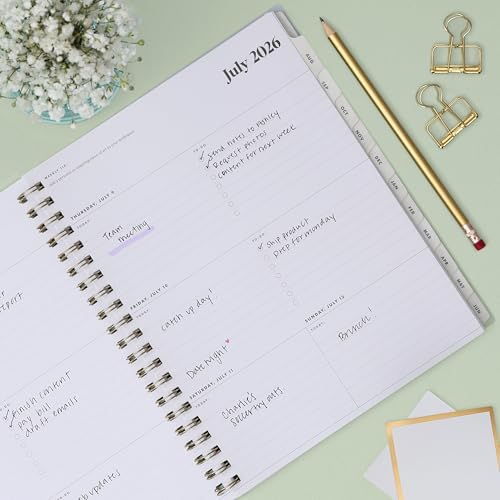 July 2026
AUG
SEP
OCT
NOV
DEC
JAN
FEB
MAR
APR
MAY
JUN
WEEKLY TIP
THURSDAY, JULY 9
TODAY:
Team
meeting
TO-DO:
send notes to Ashley
Request Photos
content for next week
FRIDAY, JULY 10
TODAY:
catch up day!
Date Night
TO-DO:
ship product
prep for monday
SATURDAY, JULY 11
TODAY:
Charlie's
soccer
SUNDAY, JULY 12
TODAY:
Brunch!
finish content
pay bill
draft emails
updates